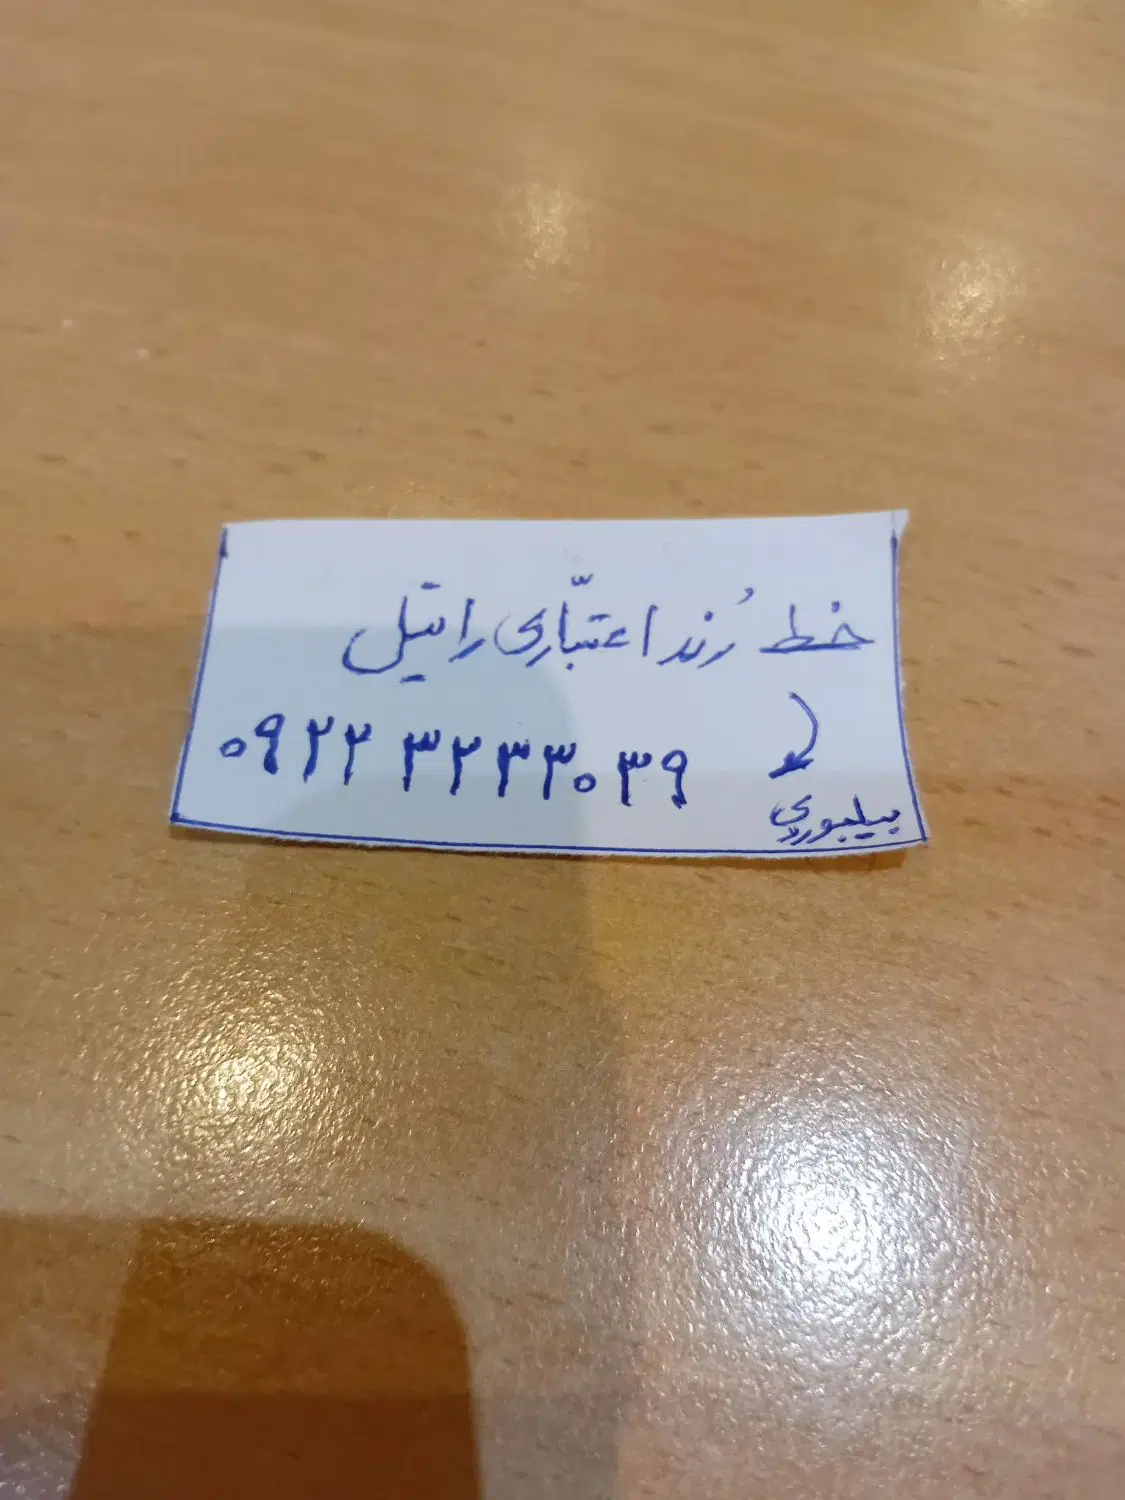 خط رُند اعتباری رایتل
۰۹۲۲ ۳۲۳۳۰۳۹
بیلبوردی